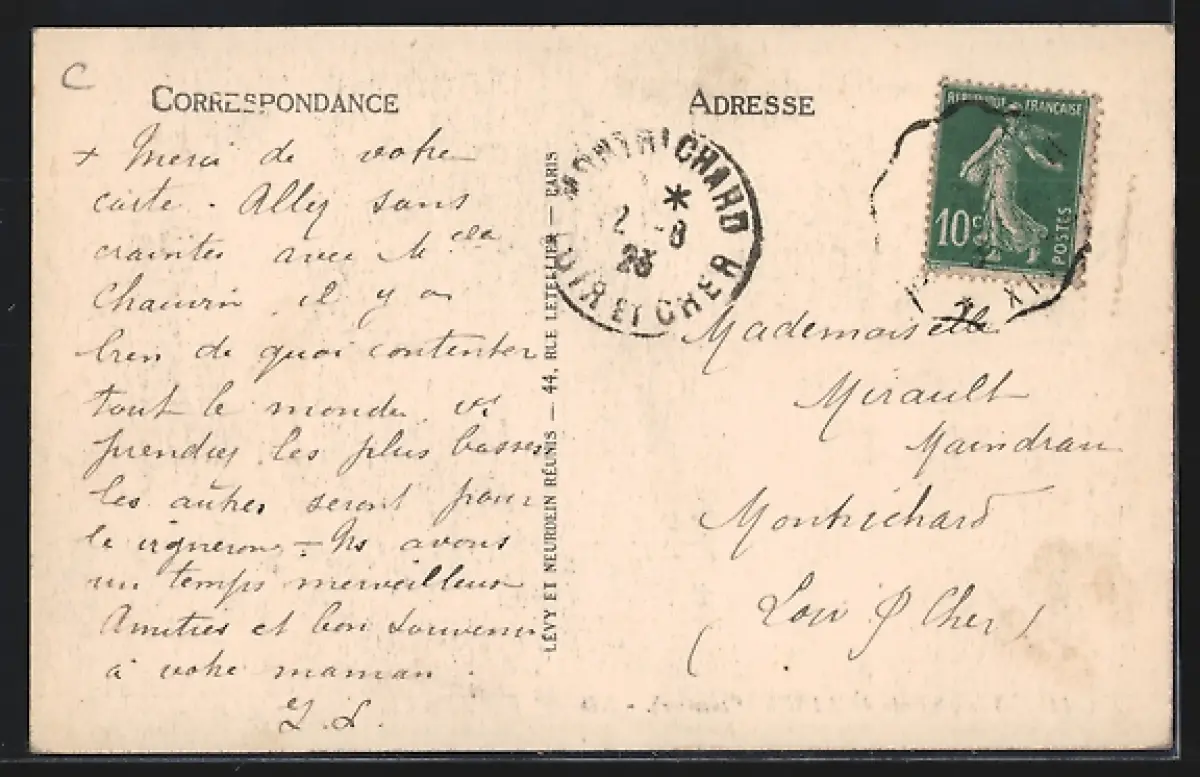 C
CORRESPONDANCE
+ Merci de votre
carte. Allez sans
craintes avec M elle
Chauvin, il y a
bien de quoi contenter
tout le monde, vs
prendrez les plus basses
les autres seront pour
le vigneron - Ns avons
un temps merveilleux
Amitiés et bon souvenir
à votre maman.
LÉVY ET NEURDEIN RÉUNIS — 44, RUE LETELLIER — PARIS
ADRESSE
MONTRICHARD
* 
2 -8
LOIR ET CHER
REPUBLIQUE FRANÇAISE
10c
POSTES
Mademoiselle
Mirault
Maindrau
Montrichard
(Loir & Cher)